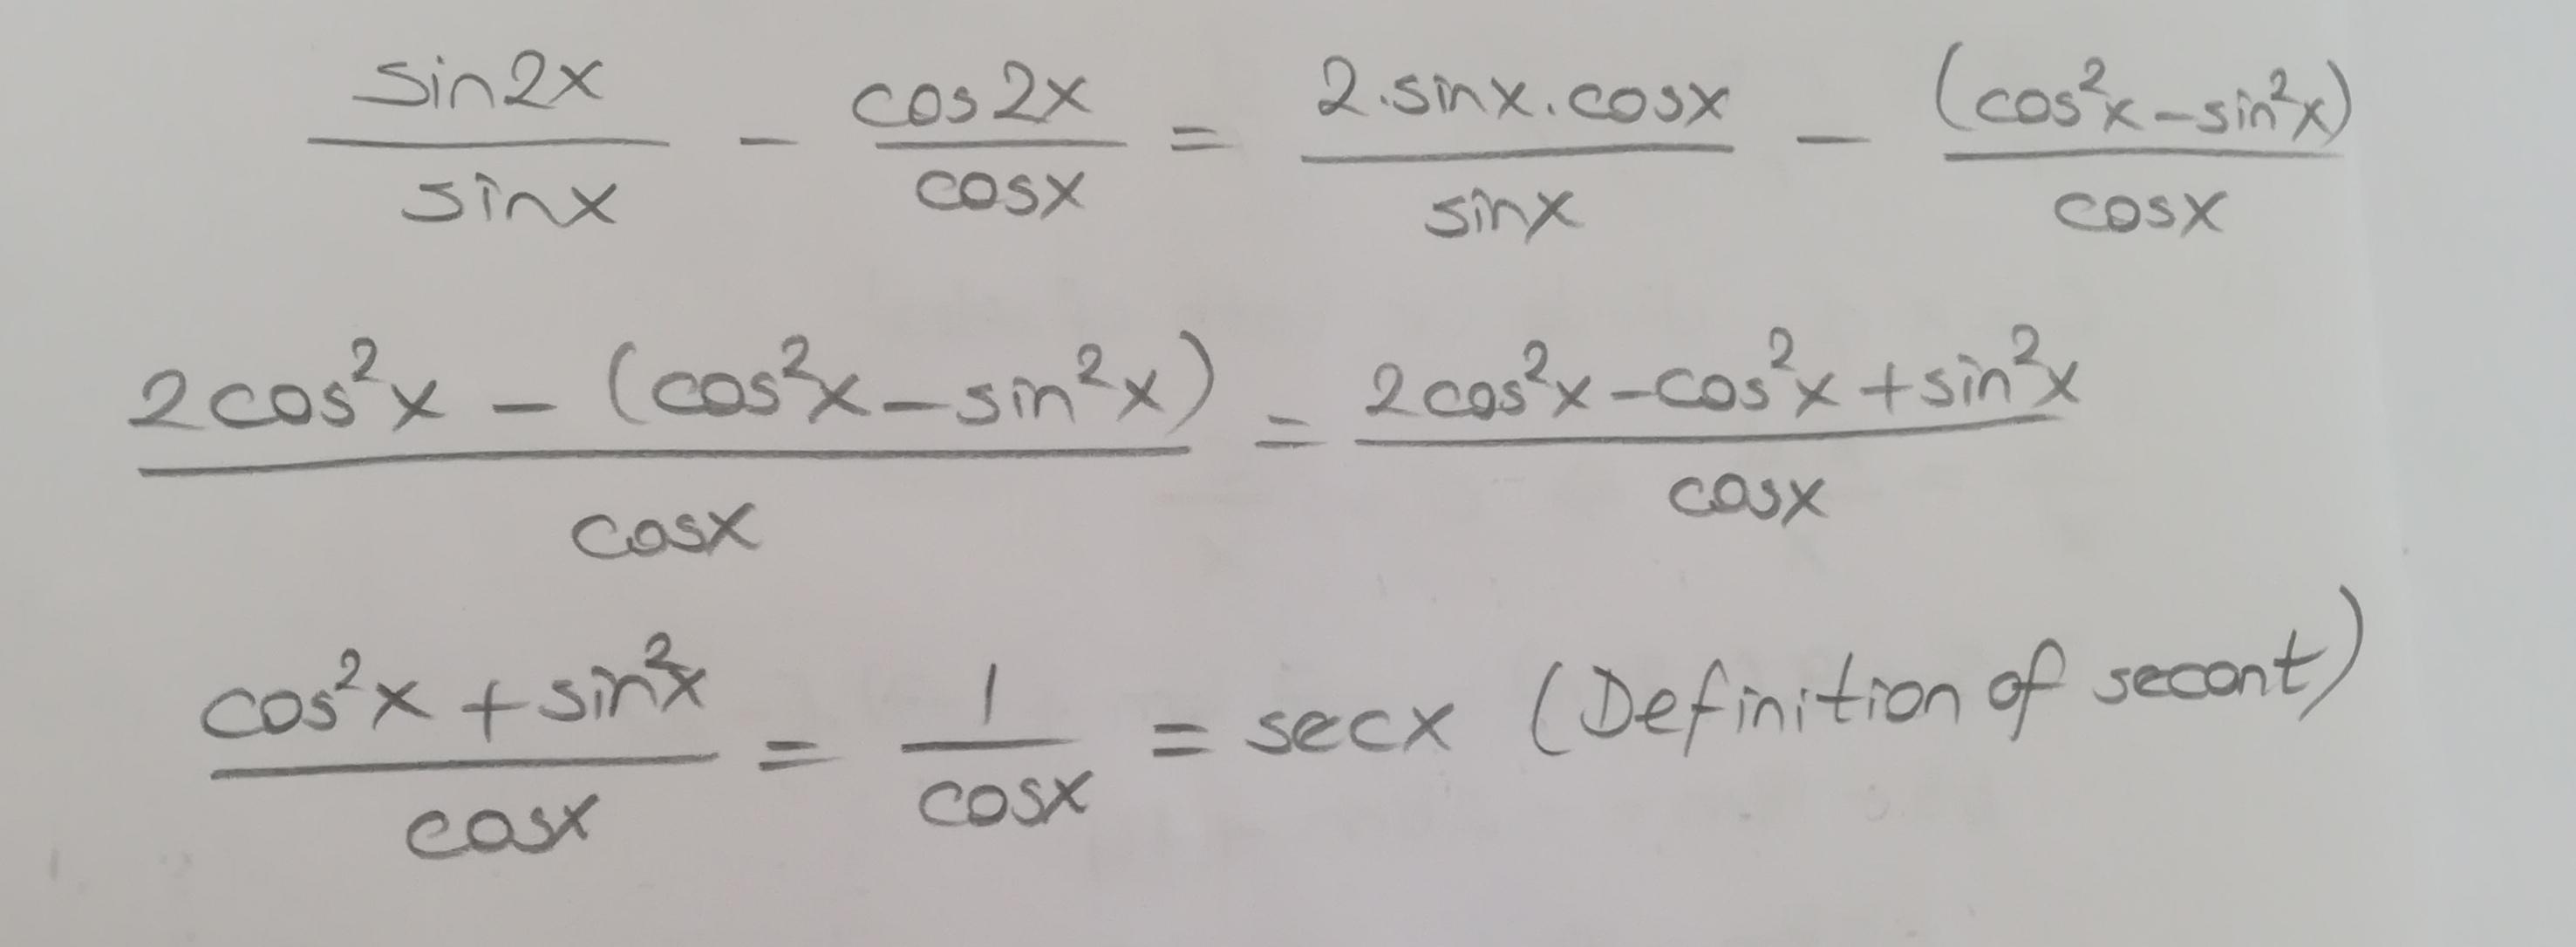 sin2x/sinx - cos2x/cosx = 2.sinx.cosx/sinx - (cos²x-sin²x)/cosx
2cos²x - (cos²x-sin²x)/cosx = 2cos²x-cos²x+sin²x/cosx
cos²x+sin²x/cosx = 1/cosx = secx (Definition of secant)